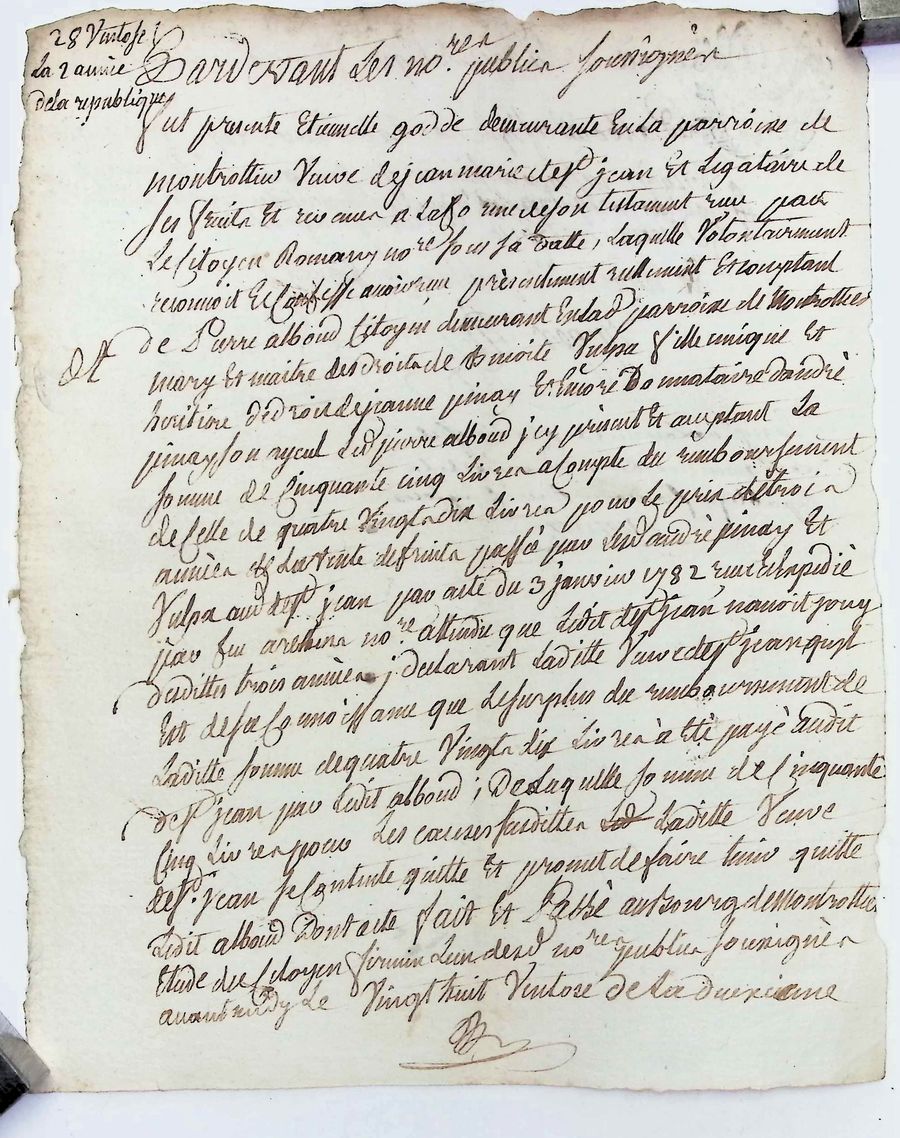 28 Ventose
La 2 année
de la republique
Pardevant Les no.res publics soussignés
fut presente Etiennette godde demeurante En La parroisse de
montrottier Veuve de jean marie de st jean Et Legataire de
ses fruits Et revenus a La forme de son testament reçu par
Le Citoyen Romany no.re sous sa datte, Laquelle Volontairement
reconnoit Et Confesse avoir reçu présentement réellement Et comptant
de Pierre alboud Citoyen demeurant En Lad parroisse de Montrottier
mary Et maitre des droits de Benoite Vulpa fille unique Et
heritiere de droit de jeanne pinay Et Encore Donnataire d'andré
pinay son ayeul Led pierre alboud jcy présent Et acceptant La
somme de Cinquante cinq Livres a Compte du remboursement
de Celle de quatre Vingts dix Livres pour Le prix de trois
années de La Vente de fruits passée par Led andré pinay Et
Vulpa aud de st jean par acte du 3 janvier 1782 reçu Et Expedié
par feu no.re attendu que Ledit de st jean navoit jouy
desdittes trois années ; declarant Laditte Veuve de st jean quil
Est de sa Connoissance que Le surplus du remboursement de
Laditte somme de quatre Vingts dix Livres à été payé audit
de st jean par Ledit alboud ; De Laquelle somme de Cinquante
Cinq Livres pour Les causes susdittes Laditte Veuve
de st. jean se Contente quitte Et promet de faire tenir quitte
Ledit alboud Dont acte fait Et Passé au Bourg de Montrottier
Etude du Citoyen firmin L'un desd no.res publics soussignés
avant midy Le Vingt huit Ventose de La deuxieme